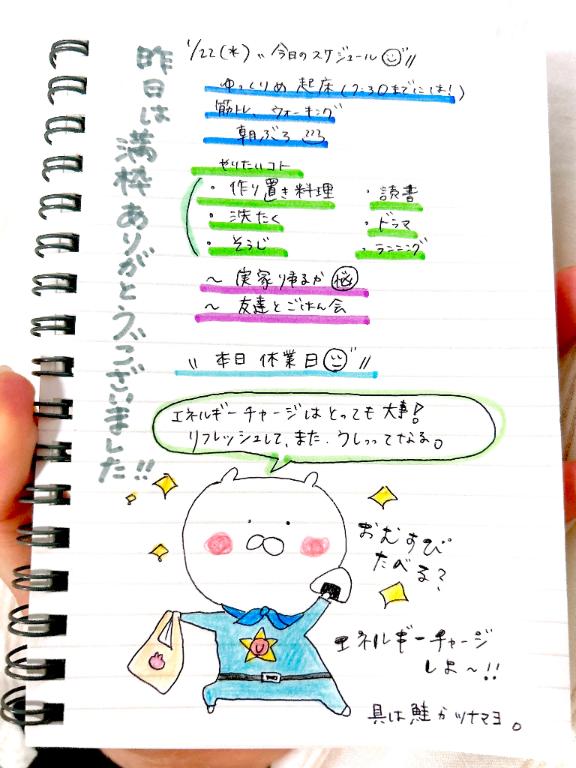 昨日は満枠ありがとうございました!!
1/22(水) 〃今日のスケジュール〃
ゆっくりめ 起床(7:30までには!)
筋トレ、ウォーキング
朝ぶろ
やりたいコト
・作り置き料理 ・読書
・洗たく ・ドラマ
・そうじ ・ランニング
〜 実家帰るか 悩
〜 友達とごはん会
〃本日 休業日〃
エネルギーチャージはとっても大事!
リフレッシュして、また、うしって
おむすび
たべる?
エネルギーチャージ
しよ〜!!
具は鮭かツナマヨ。